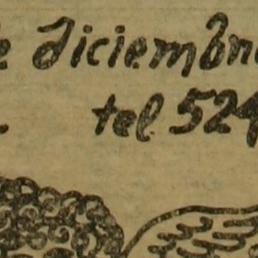 e diciembre
tel. 524